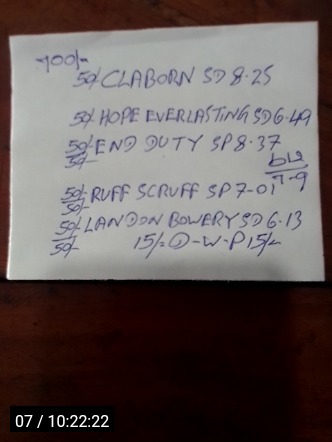 700/-
50/- CLABORN SD 8.25
50/- HOPE EVERLASTING SD 6.49
50/- END DUTY SP 8.37
50/-
50/- RUFF SCRUFF SP 7-01
50/-
50/- LANDON BOWERY SD 6.13
50/- 15/- ①-W-P 15/-
07 / 10:22:22